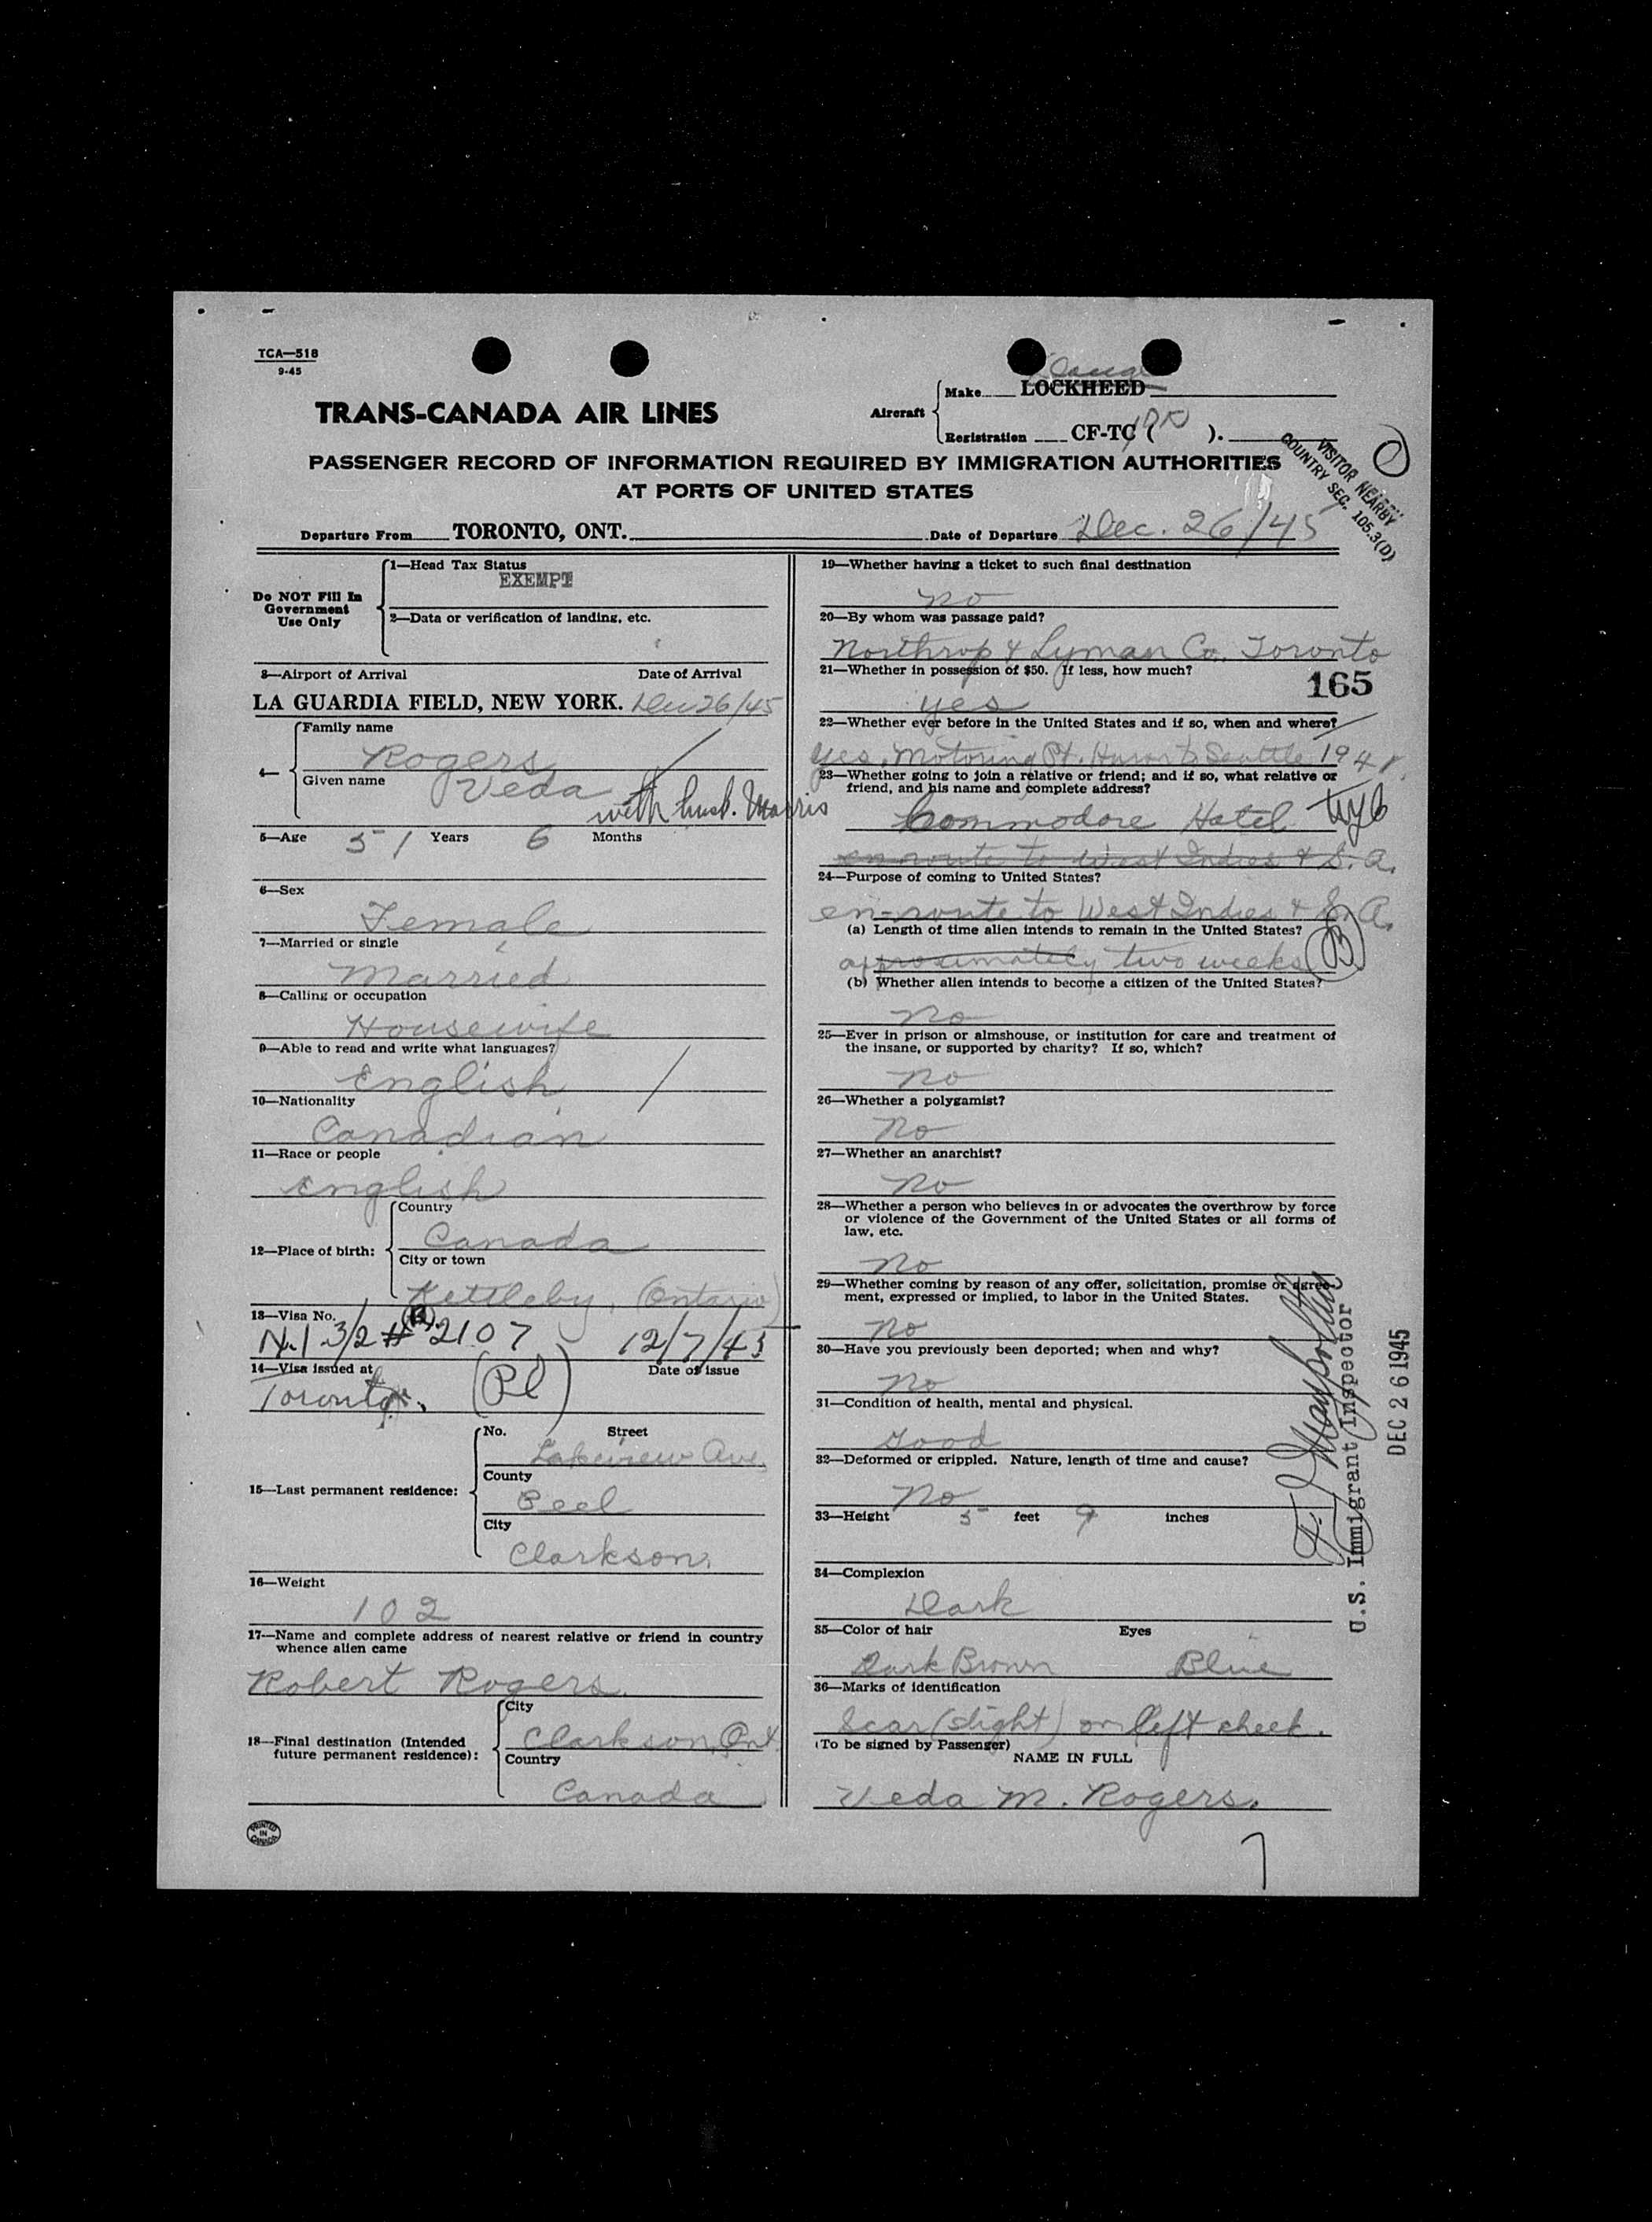 TCA—518
9-45
TRANS-CANADA AIR LINES
Aircraft
Make LOCKHEED
Registration CF-TC ( ).
PASSENGER RECORD OF INFORMATION REQUIRED BY IMMIGRATION AUTHORITIES
AT PORTS OF UNITED STATES
VISITOR NEARBY
COUNTRY SEC. 105.3(D)
Departure From TORONTO, ONT. Date of Departure Dec. 26/45
Do NOT Fill In
Government
Use Only
1—Head Tax Status
EXEMPT
2—Data or verification of landing, etc.
3—Airport of Arrival Date of Arrival
LA GUARDIA FIELD, NEW YORK. Dec 26/45
4—
Family name
Rogers
Given name
Veda
with husb. Morris
5—Age 51 Years 6 Months
6—Sex
Female
7—Married or single
Married
8—Calling or occupation
Housewife
9—Able to read and write what languages?
English
10—Nationality
Canadian
11—Race or people
English
12—Place of birth:
Country
Canada
City or town
Kettleby, (Ontario)
13—Visa No.
#2107 12/7/45
14—Visa issued at Date of issue
Toronto.
15—Last permanent residence:
No. Street
Lakeview Ave
County
Peel
City
Clarkson.
16—Weight
102
17—Name and complete address of nearest relative or friend in country
whence alien came
Robert Rogers.
18—Final destination (Intended
future permanent residence):
City
Clarkson, Ont.
Country
Canada
PRINTED
IN
CANADA
19—Whether having a ticket to such final destination
no
20—By whom was passage paid?
Northrop & Lyman Co. Toronto
21—Whether in possession of $50. If less, how much?
165
yes
22—Whether ever before in the United States and if so, when and where?
yes, Motoring Pt. Huron to Seattle
23—Whether going to join a relative or friend; and if so, what relative or
friend, and his name and complete address?
Commodore Hotel
en route to West Indies & S. A.
24—Purpose of coming to United States?
en-route to West Indies & S. A.
(a) Length of time alien intends to remain in the United States?
approximately two weeks
(B)
(b) Whether alien intends to become a citizen of the United States?
no
25—Ever in prison or almshouse, or institution for care and treatment of
the insane, or supported by charity? If so, which?
no
26—Whether a polygamist?
No
27—Whether an anarchist?
No
28—Whether a person who believes in or advocates the overthrow by force
or violence of the Government of the United States or all forms of
law, etc.
No
29—Whether coming by reason of any offer, solicitation, promise or agree-
ment, expressed or implied, to labor in the United States.
no
30—Have you previously been deported; when and why?
no
31—Condition of health, mental and physical.
Good
32—Deformed or crippled. Nature, length of time and cause?
No
33—Height 5 feet 9 inches
34—Complexion
Dark
35—Color of hair Eyes
Dark Brown Blue
36—Marks of identification
Scar (slight) on left cheek.
(To be signed by Passenger)
NAME IN FULL
Veda M. Rogers.
U.S. Immigrant Inspector
DEC 26 1945